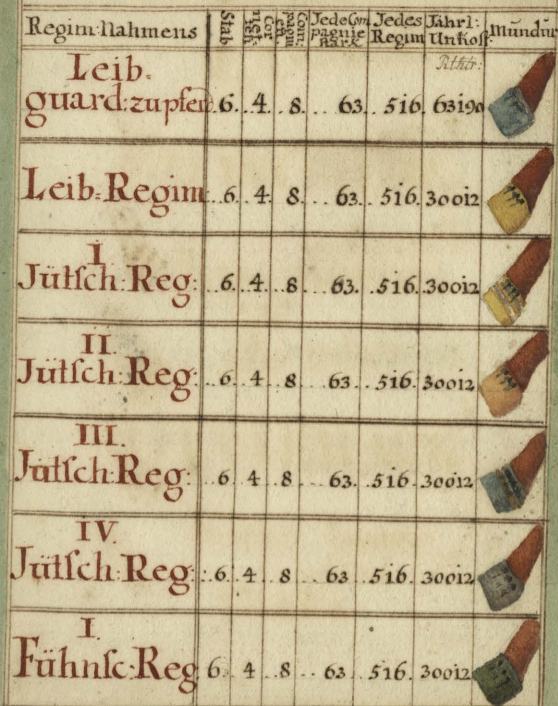 Regim: Nahmens Stab Cornet: Compagnien Jede Compagnie starck Jedes Regim Jährl: Unkost: Mundur
Rthlr:
Leib-
guard: zu pferd 6. 4. 8. 63. 516. 63190
Leib-Regim 6. 4. 8. 63. 516. 30012
I
Jütsch: Reg: 6. 4. 8. 63. 516. 30012
II.
Jütsch: Reg: 6. 4 8. 63. 516. 30012
III.
Jütsch: Reg: 6. 4. 8. 63. 516. 30012
IV.
Jütsch: Reg: 6. 4. 8. 63 516. 30012
I.
Fühnsc: Reg 6. 4 8. 63. 516. 30012